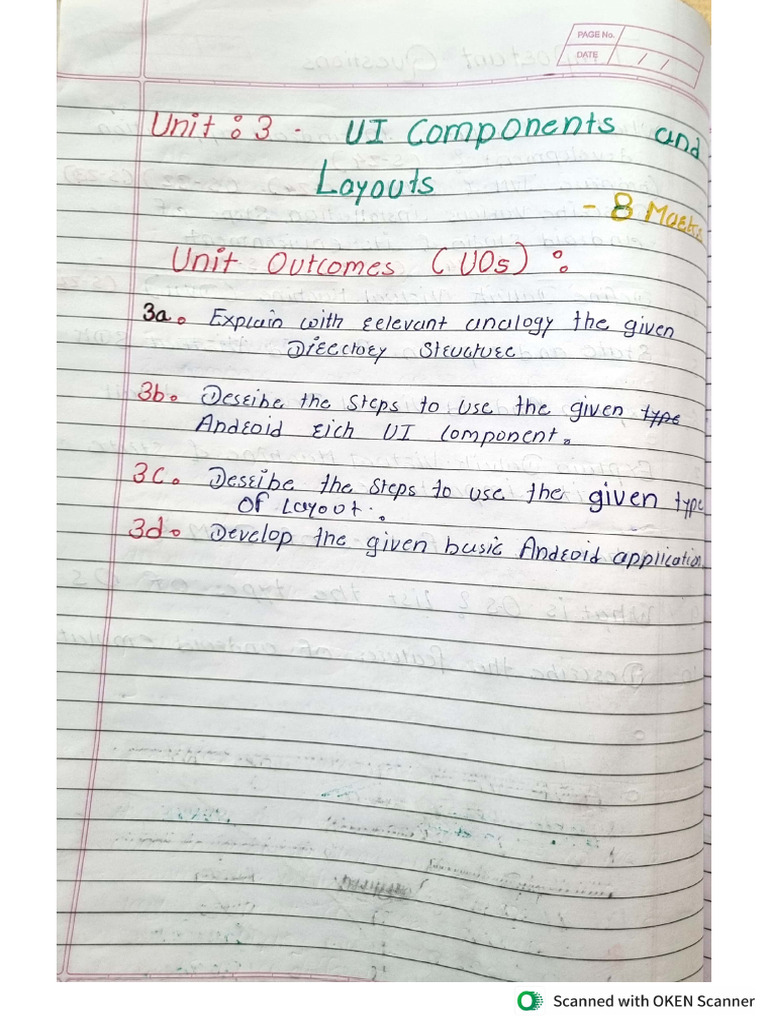 PAGE No.
DATE / /
Unit : 3 - UI Components and
Layouts
- 8 Marks
Unit Outcomes (UOs) :
3a. Explain with relevant analogy the given
Directory Structure
3b. Describe the steps to use the given type
Android rich UI component.
3c. Describe the steps to use the given type
of Layout.
3d. Develop the given basic Android application
Scanned with OKEN Scanner